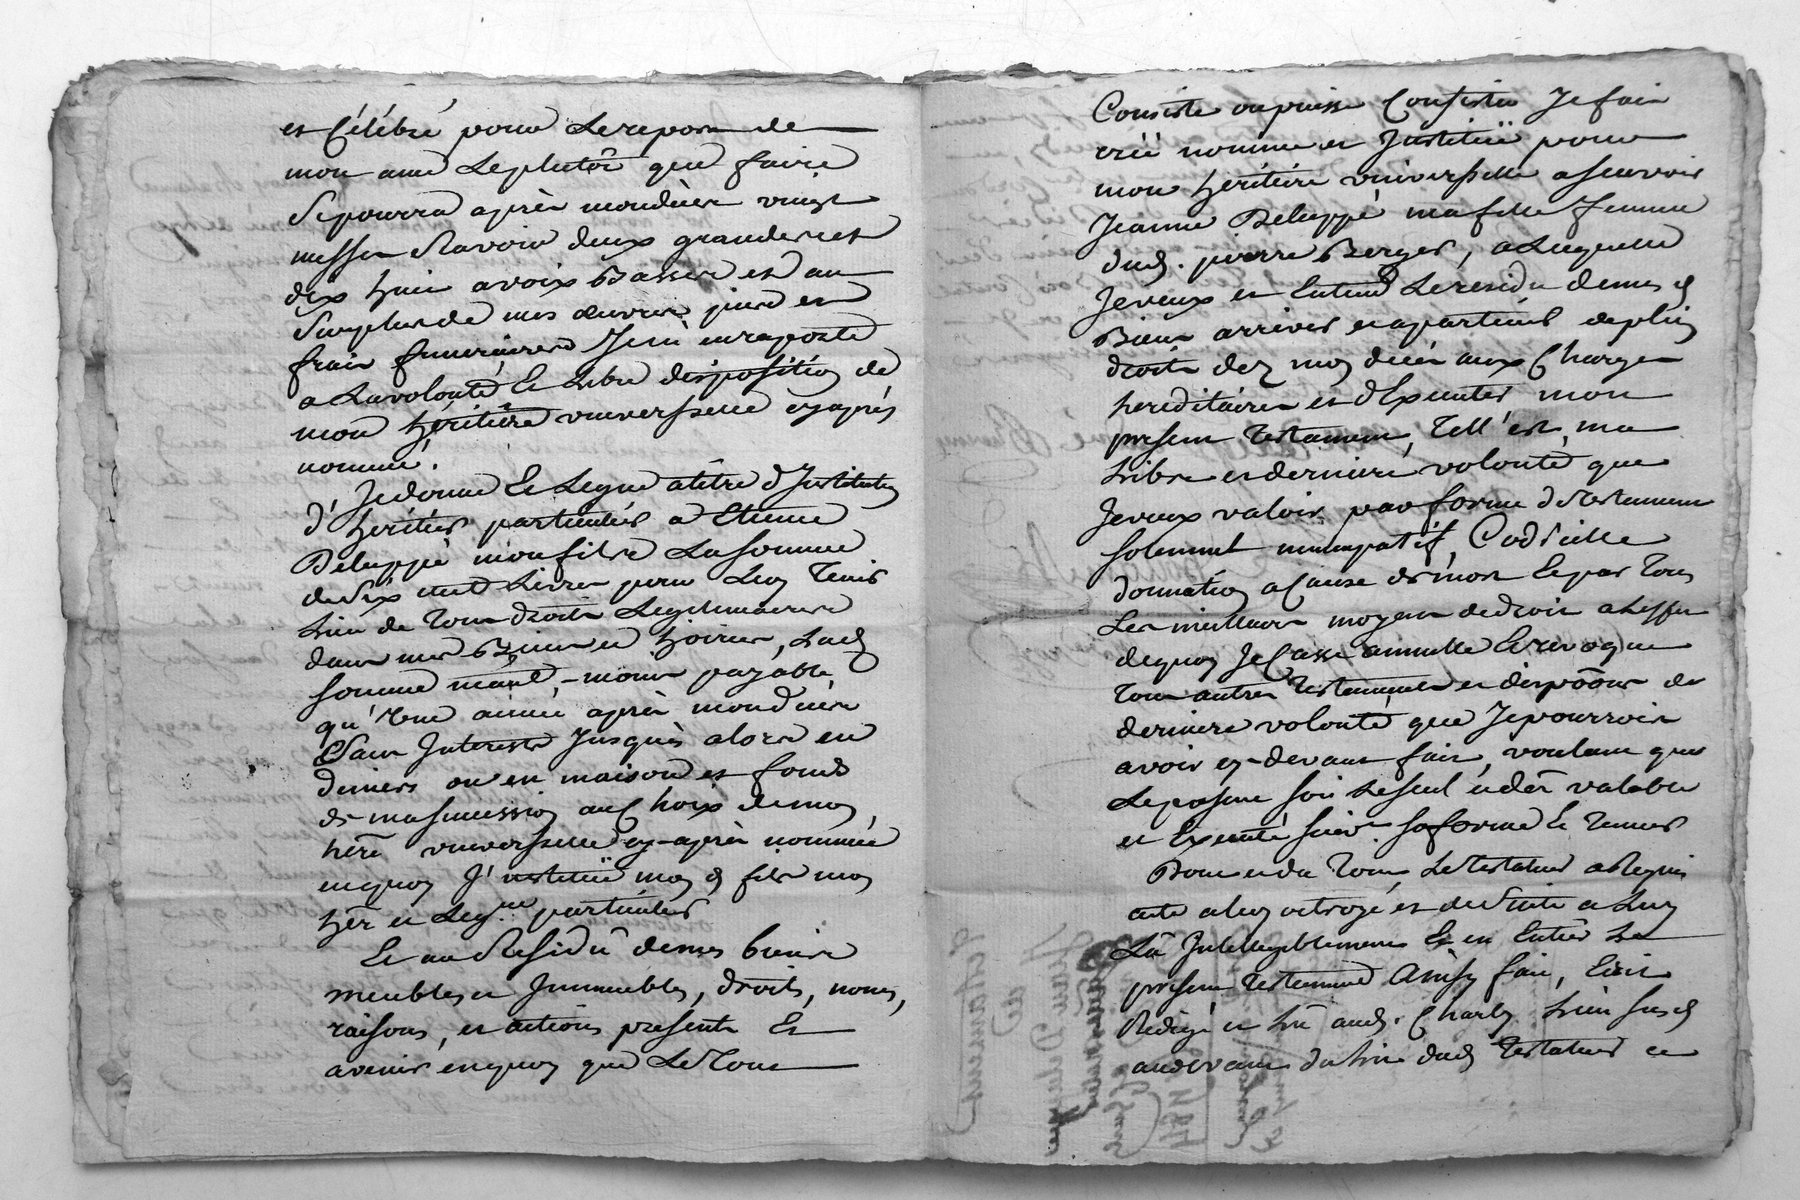 et Célébré pour Lerepos de
mon ame Leplutôt que faire
Sepourra après mondécès vingt
messes Scavoir deux grandes et
dix huit avoix Basses et au
Surplus de mes œuvres pies et
frais funeraires Je m'enraporte
a Lavolonté Et Libre disposition de
mon héritière universselle cy après
nommée.
Jedonne Et Legue atitre d'Institution
d'héritier particulier a Etienne
Beluppé monfils La somme
de Six cent Livres pour Luy tenir
Lieu de tous droits Legitimaires
dans mes Biens et hoiries, Lad
somme payable
qu'une année après mondécès
Sans Interests Jusques alors en
deniers ou en maison et fonds
de masuccession auChoix demon
hére universselle cy-après nommée
enquoy J'institüe mon d fils mon
hér et Leg.re particulier
Et au Résidu demes biens
meubles et Immeubles, droits, noms,
raisons, et actions presents Et
avenir enquoy que Letout
Consiste oupuisse Consister Je fais
créé nomme et Institüe pour
mon héritière universselle ascavoir
Jeanne Beluppé mafille femme
dud. pierre Berger, a Laquelle
Jeveux et Entend Leresidu demes d
Biens arriver et apartenir deplein
droit dez mon décès aux Charges
hereditaires et d'Executer mon
present testament, Tell'est, ma
Libre et dernière volonté que
Jeveux valoir par forme de testament
solemnel nuncupatif, Codicille
donnation aCause demort Et par tous
Les meilleurs moyens dedroit aLeffet
dequoy JeCasse annulle Et revoque
tous autres testaments et dispôôns de
derniere volonté que Jepourrois
avoir cy-devant fait, voulant que
Lepresent soit Leseul valable
et Executé suiv.t saforme Et teneur
Donc et du tout Letestateur aRequis
acte aluy octroyé et de Suite a Luy
Lû Intelligiblement Et en Entier Le
present testament Ainsy fait, Ecrit
Redigé et Lû aud. Charly Lieu susd
audevant du dud testateur ce